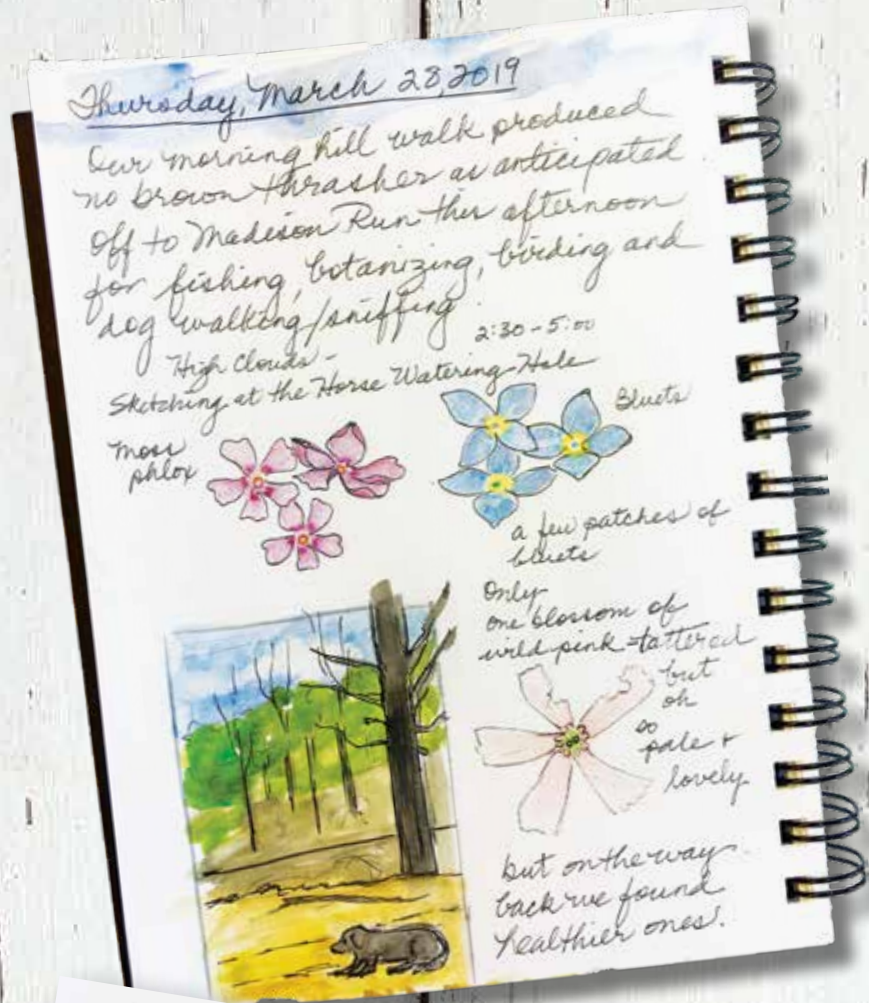 Thursday, March 28, 2019
Our morning hill walk produced
no brown thrasher as anticipated.
Off to Madison Run this afternoon
for fishing, botanizing, birding and
dog walking/sniffing.
2:30-5:00
High Clouds-
Sketching at the Horse Watering Hole
Moss
phlox
Bluets
a few patches of
bluets
Only
one blossom of
wild pink-tattered
but
oh
so
pale +
lovely
but on the way
back we found
healthier ones!